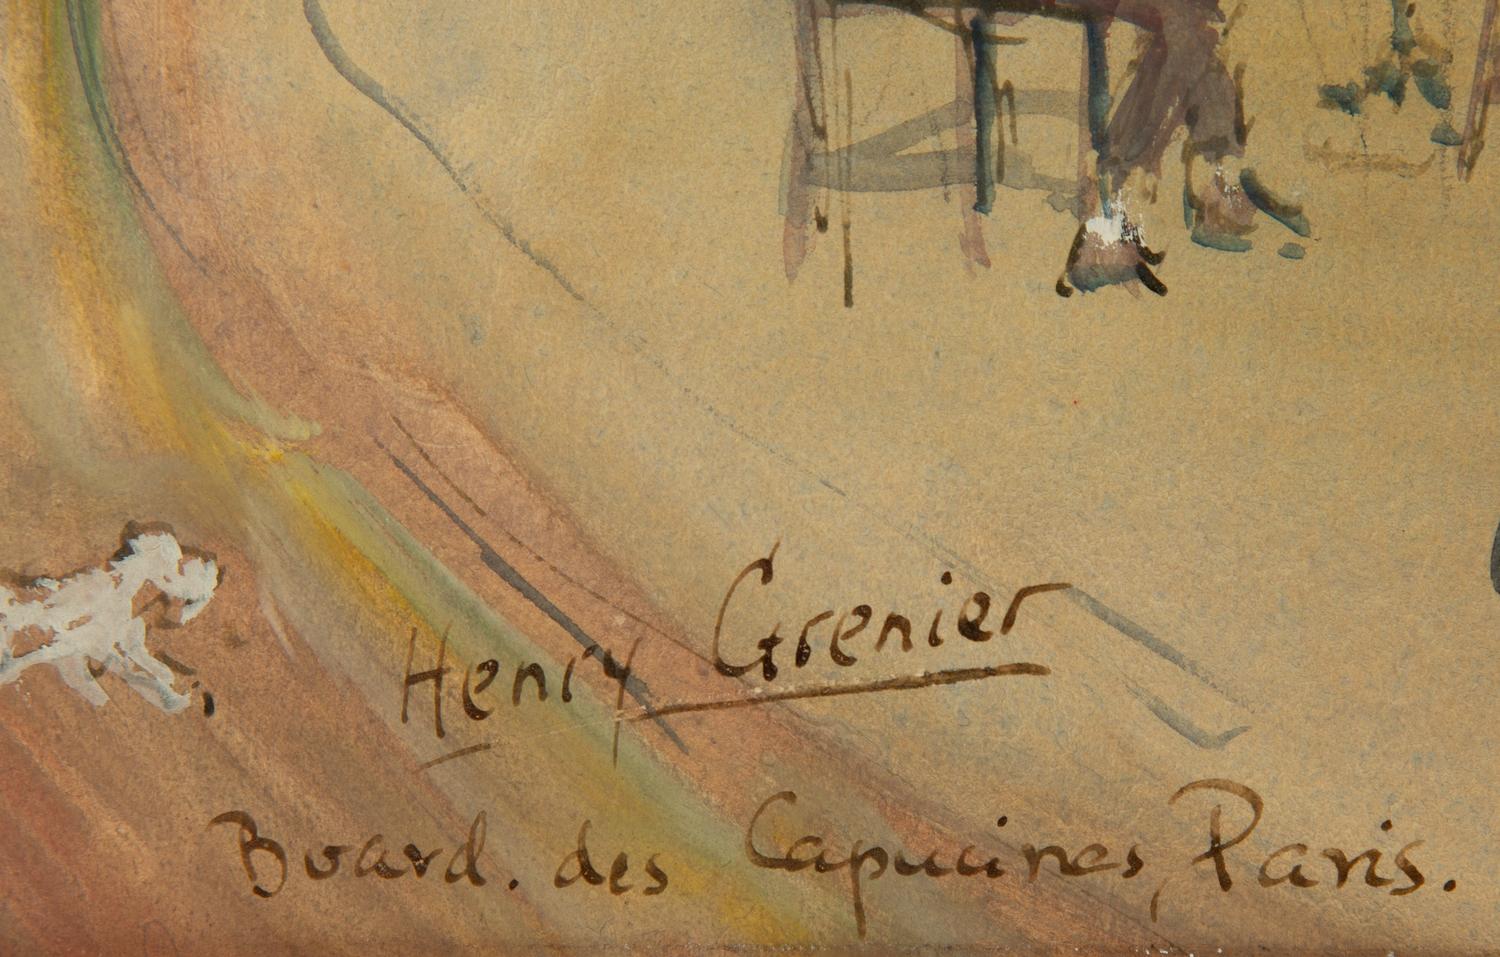 Henry Grenier
Board. des Capucines, Paris.